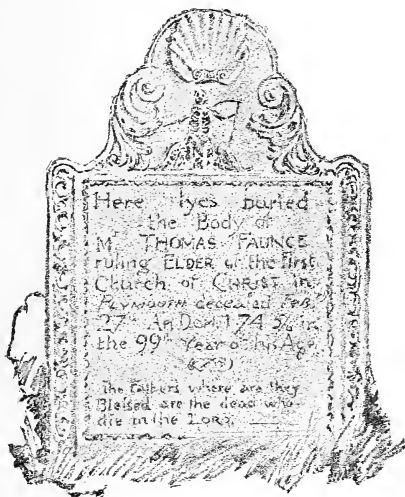 Here lyes buried
the Body of
Mr THOMAS FAUNCE
ruling ELDER of the First
Church of CHRIST in
PLYMOUTH deceased Feb'y
27th An: Dom. 174 5/6 in
the 99th Year of his Age
The Fathers where are they
Blessed are the dead who
die in the LORD.